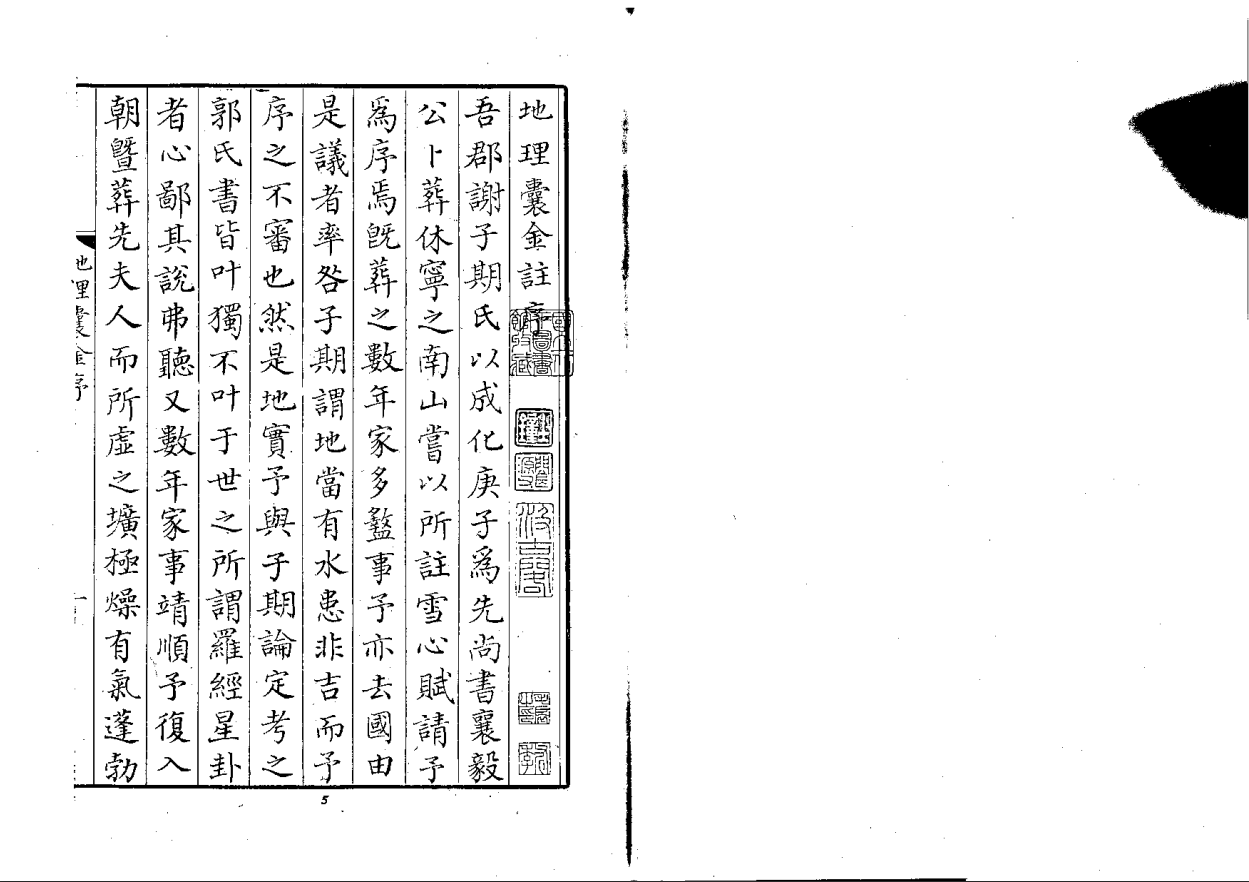 地理囊金註序
吾郡謝子期氏以成化庚子爲先尚書襄毅
公卜葬休寧之南山嘗以所註雪心賦請予
爲序焉旣葬之數年家多盭事予亦去國由
是議者率咎子期謂地當有水患非吉而予
序之不審也然是地實予與子期論定考之
郭氏書皆叶獨不叶于世之所謂羅經星卦
者心鄙其説弗聽又數年家事靖順予復入
朝曁葬先夫人而所虛之壙極燥有氣蓬勃
地理囊金序
一
5